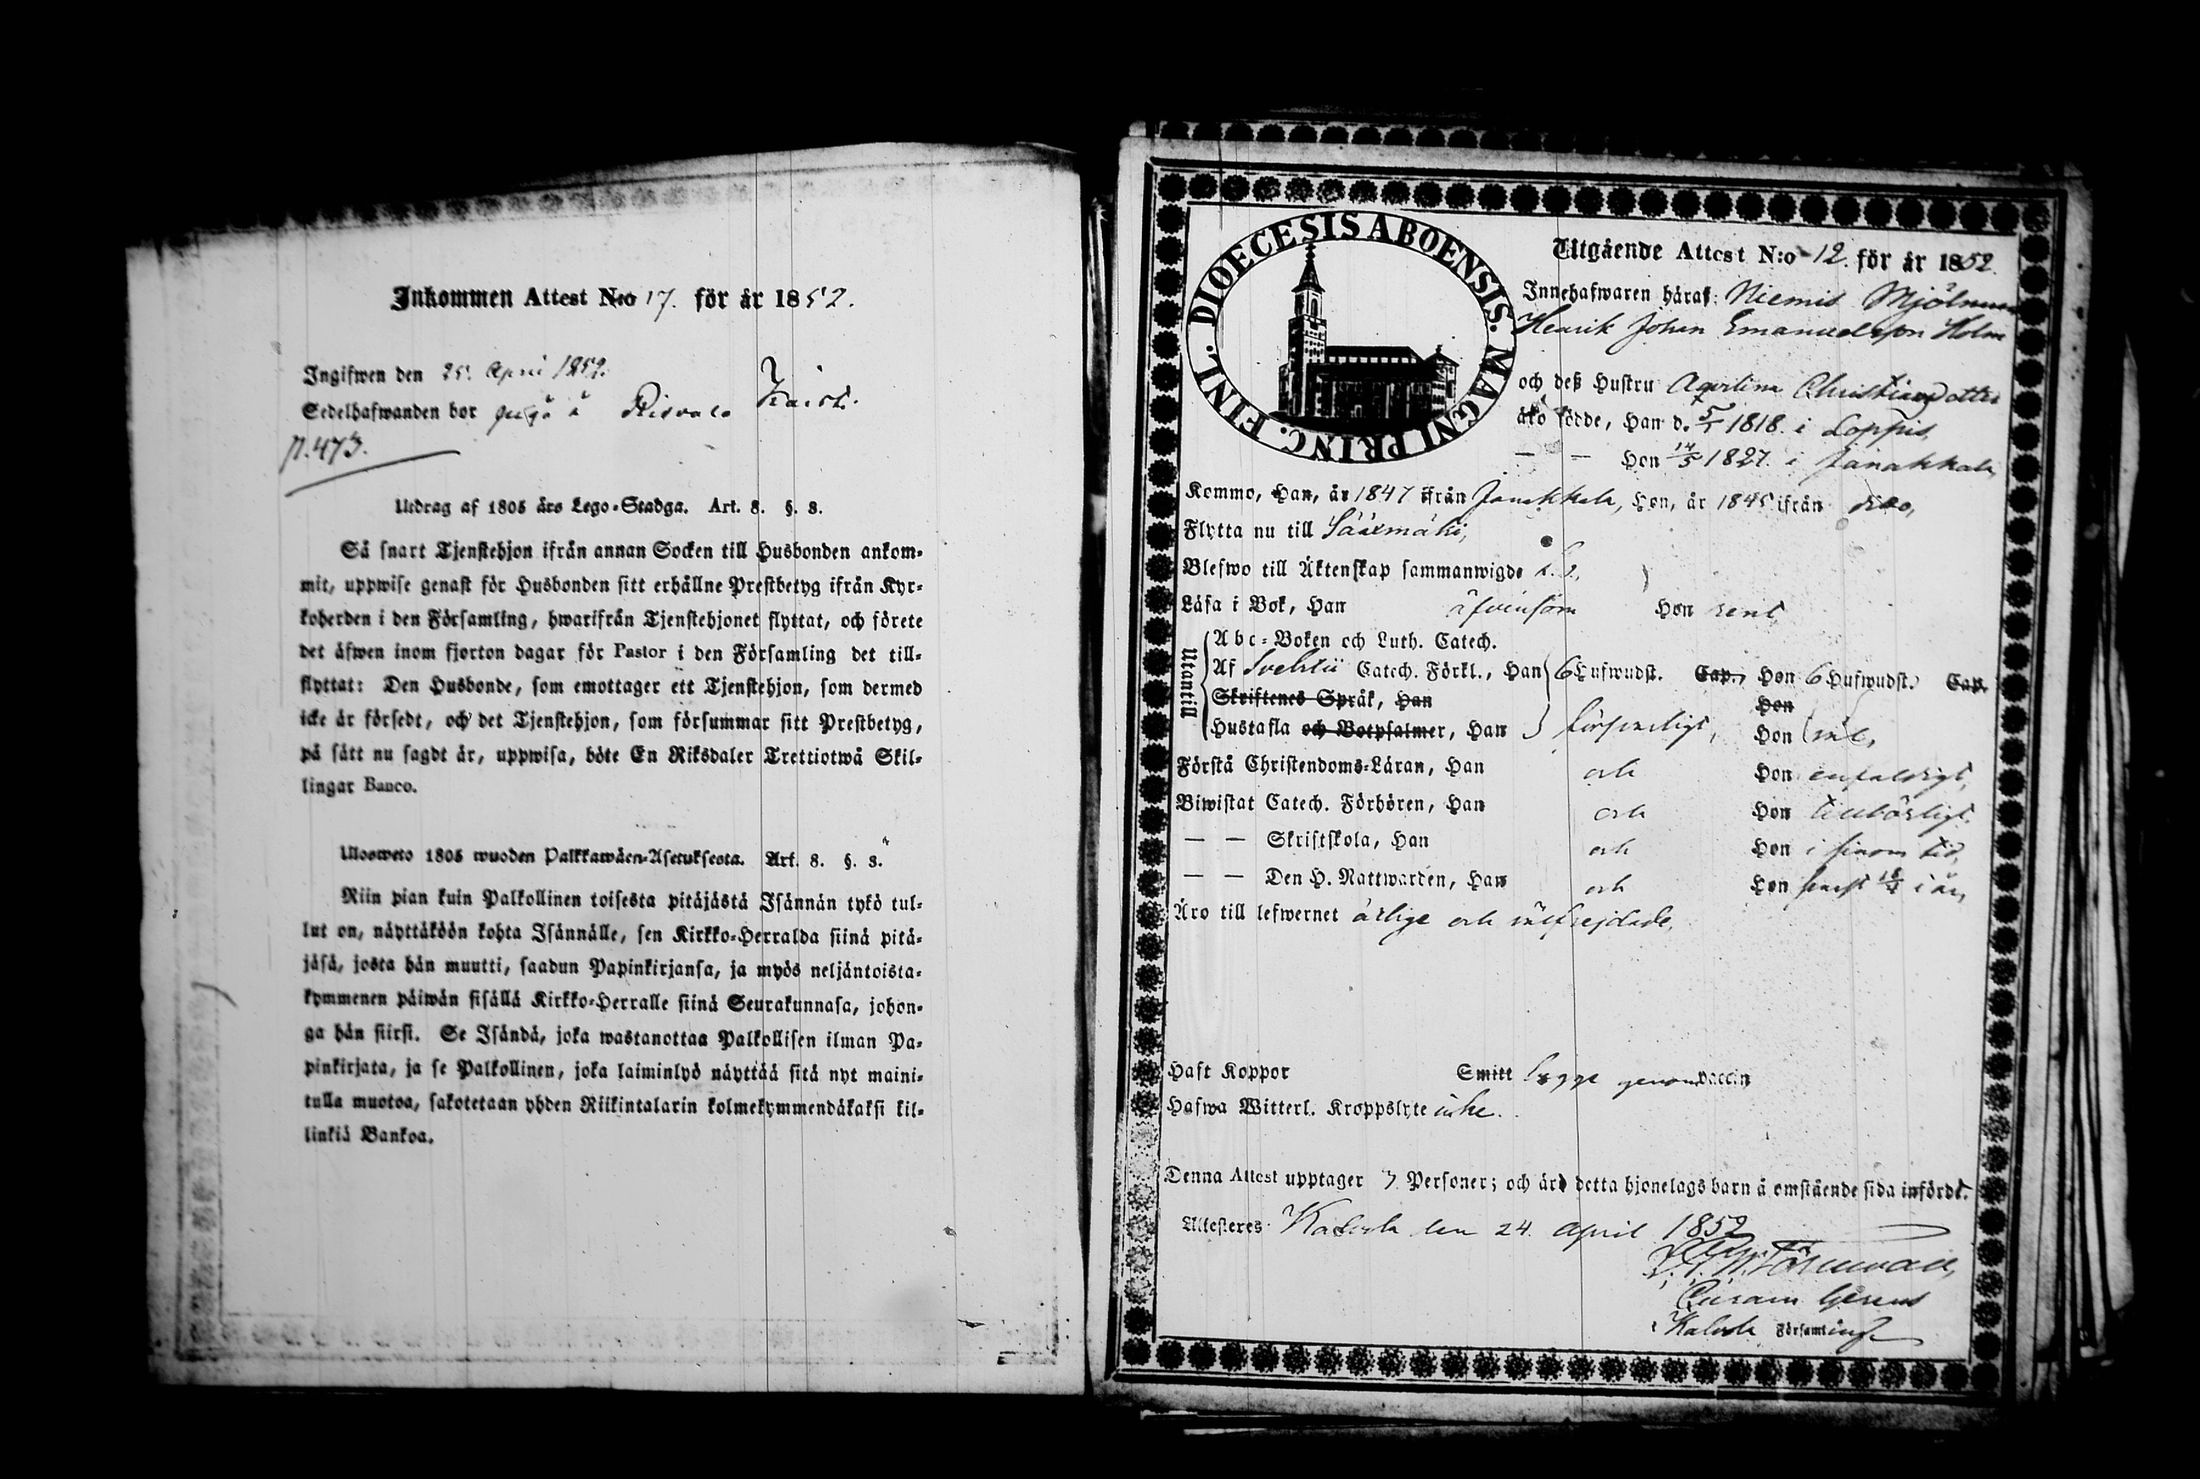 Inkommen Attest N:o 17. för år 1852.
Ingifwen den 25. April 1852.
Sedelhafwanden bor på Risvala
p. 473.
Utdrag af 1805 års Lego-Stadga. Art. 8. §. 8.
Så snart Tjenstehjon ifrån annan Socken till Husbonden ankom-
mit, uppwise genast för Husbonden sitt erhållne Prestbetyg ifrån Kyr-
koherden i den Församling, hwarifrån Tjenstehjonet flyttat, och förete
det äfwen inom fjorton dagar för Pastor i den Församling det till-
flyttat: Den Husbonde, som emottager ett Tjenstehjon, som dermed
icke är försedt, och det Tjenstehjon, som försummar sitt Prestbetyg,
på sätt nu sagdt är, uppwisa, böte En Riksdaler Trettiotwå Skil-
lingar Banco.
Ulosweto 1805 wuoden Palkkawäen-Asetuksesta. Art. 8. §. 8.
Niin pian kuin Palkollinen toisesta pitäjästä Isännän tykö tul-
lut on, näyttäköön kohta Isännälle, sen Kirkko-Herralda siinä pitä-
jäsä, josta hän muutti, saadun Papinkirjansa, ja myös neljäntoista-
kymmenen päiwän sisällä Kirkko-Herralle siinä Seurakunnasa, johon-
ga hän siirsi. Se Isändä, joka wastanottaa Palkollisen ilman Pa-
pinkirjata, ja se Palkollinen, joka laiminlyö näyttää sitä nyt maini-
tulla muotoa, sakotetaan yhden Riikintalarin kolmekymmendäkaksi kil-
linkiä Bankoa.
DIOECESIS ABOENSIS. MAGNI PRINC. FINL.
Utgående Attest N:o 12. för år 1852.
Innehafwaren häraf: Niemis Mjölnaren
Henrik Johan Emanuelsson Holm
och deß Hustru Agvilina Christiansdotter
äro födde, Han d. 5/1 1818 i Loppis,
— — Hon 14/5 1827. i Janakkala,
Kommo, Han, år 1847 ifrån Janakkala, Hon, år 1845 ifrån dito,
Flytta nu till Sääxmäki,
Blefwo till Äktenskap sammanwigde
Läsa i Bok, Han äfvensom Hon rent
Utantill
Abc-Boken och Luth. Catech.
Af Svebilii Catech. Förkl., Han 6 Hufwudst. Cap. Hon 6 Hufwudst. Cap.
Skriftenes Språk, Han Hon
Hustafla och Botpsalmer, Han försvarligt, Hon väl,
Förstå Christendoms-Läran, Han och Hon enfaldigt,
Biwistat Catech. Förhören, Han och Hon tillbörligt.
— — Skriftskola, Han och Hon i sinom tid,
— — Den H. Nattwarden, Han och Hon i år,
Äro till lefwernet ärlige och välfrejdade,
Haft Koppor Smitt begge genom vaccin
Hafwa Witterl. Kroppslyte icke.
Denna Attest upptager 7 Personer; och äro detta hjonelags barn å omstående sida införde.
Attesteres Kalvola den 24 April 1852
Curam Gerens
i Kalvola Församling